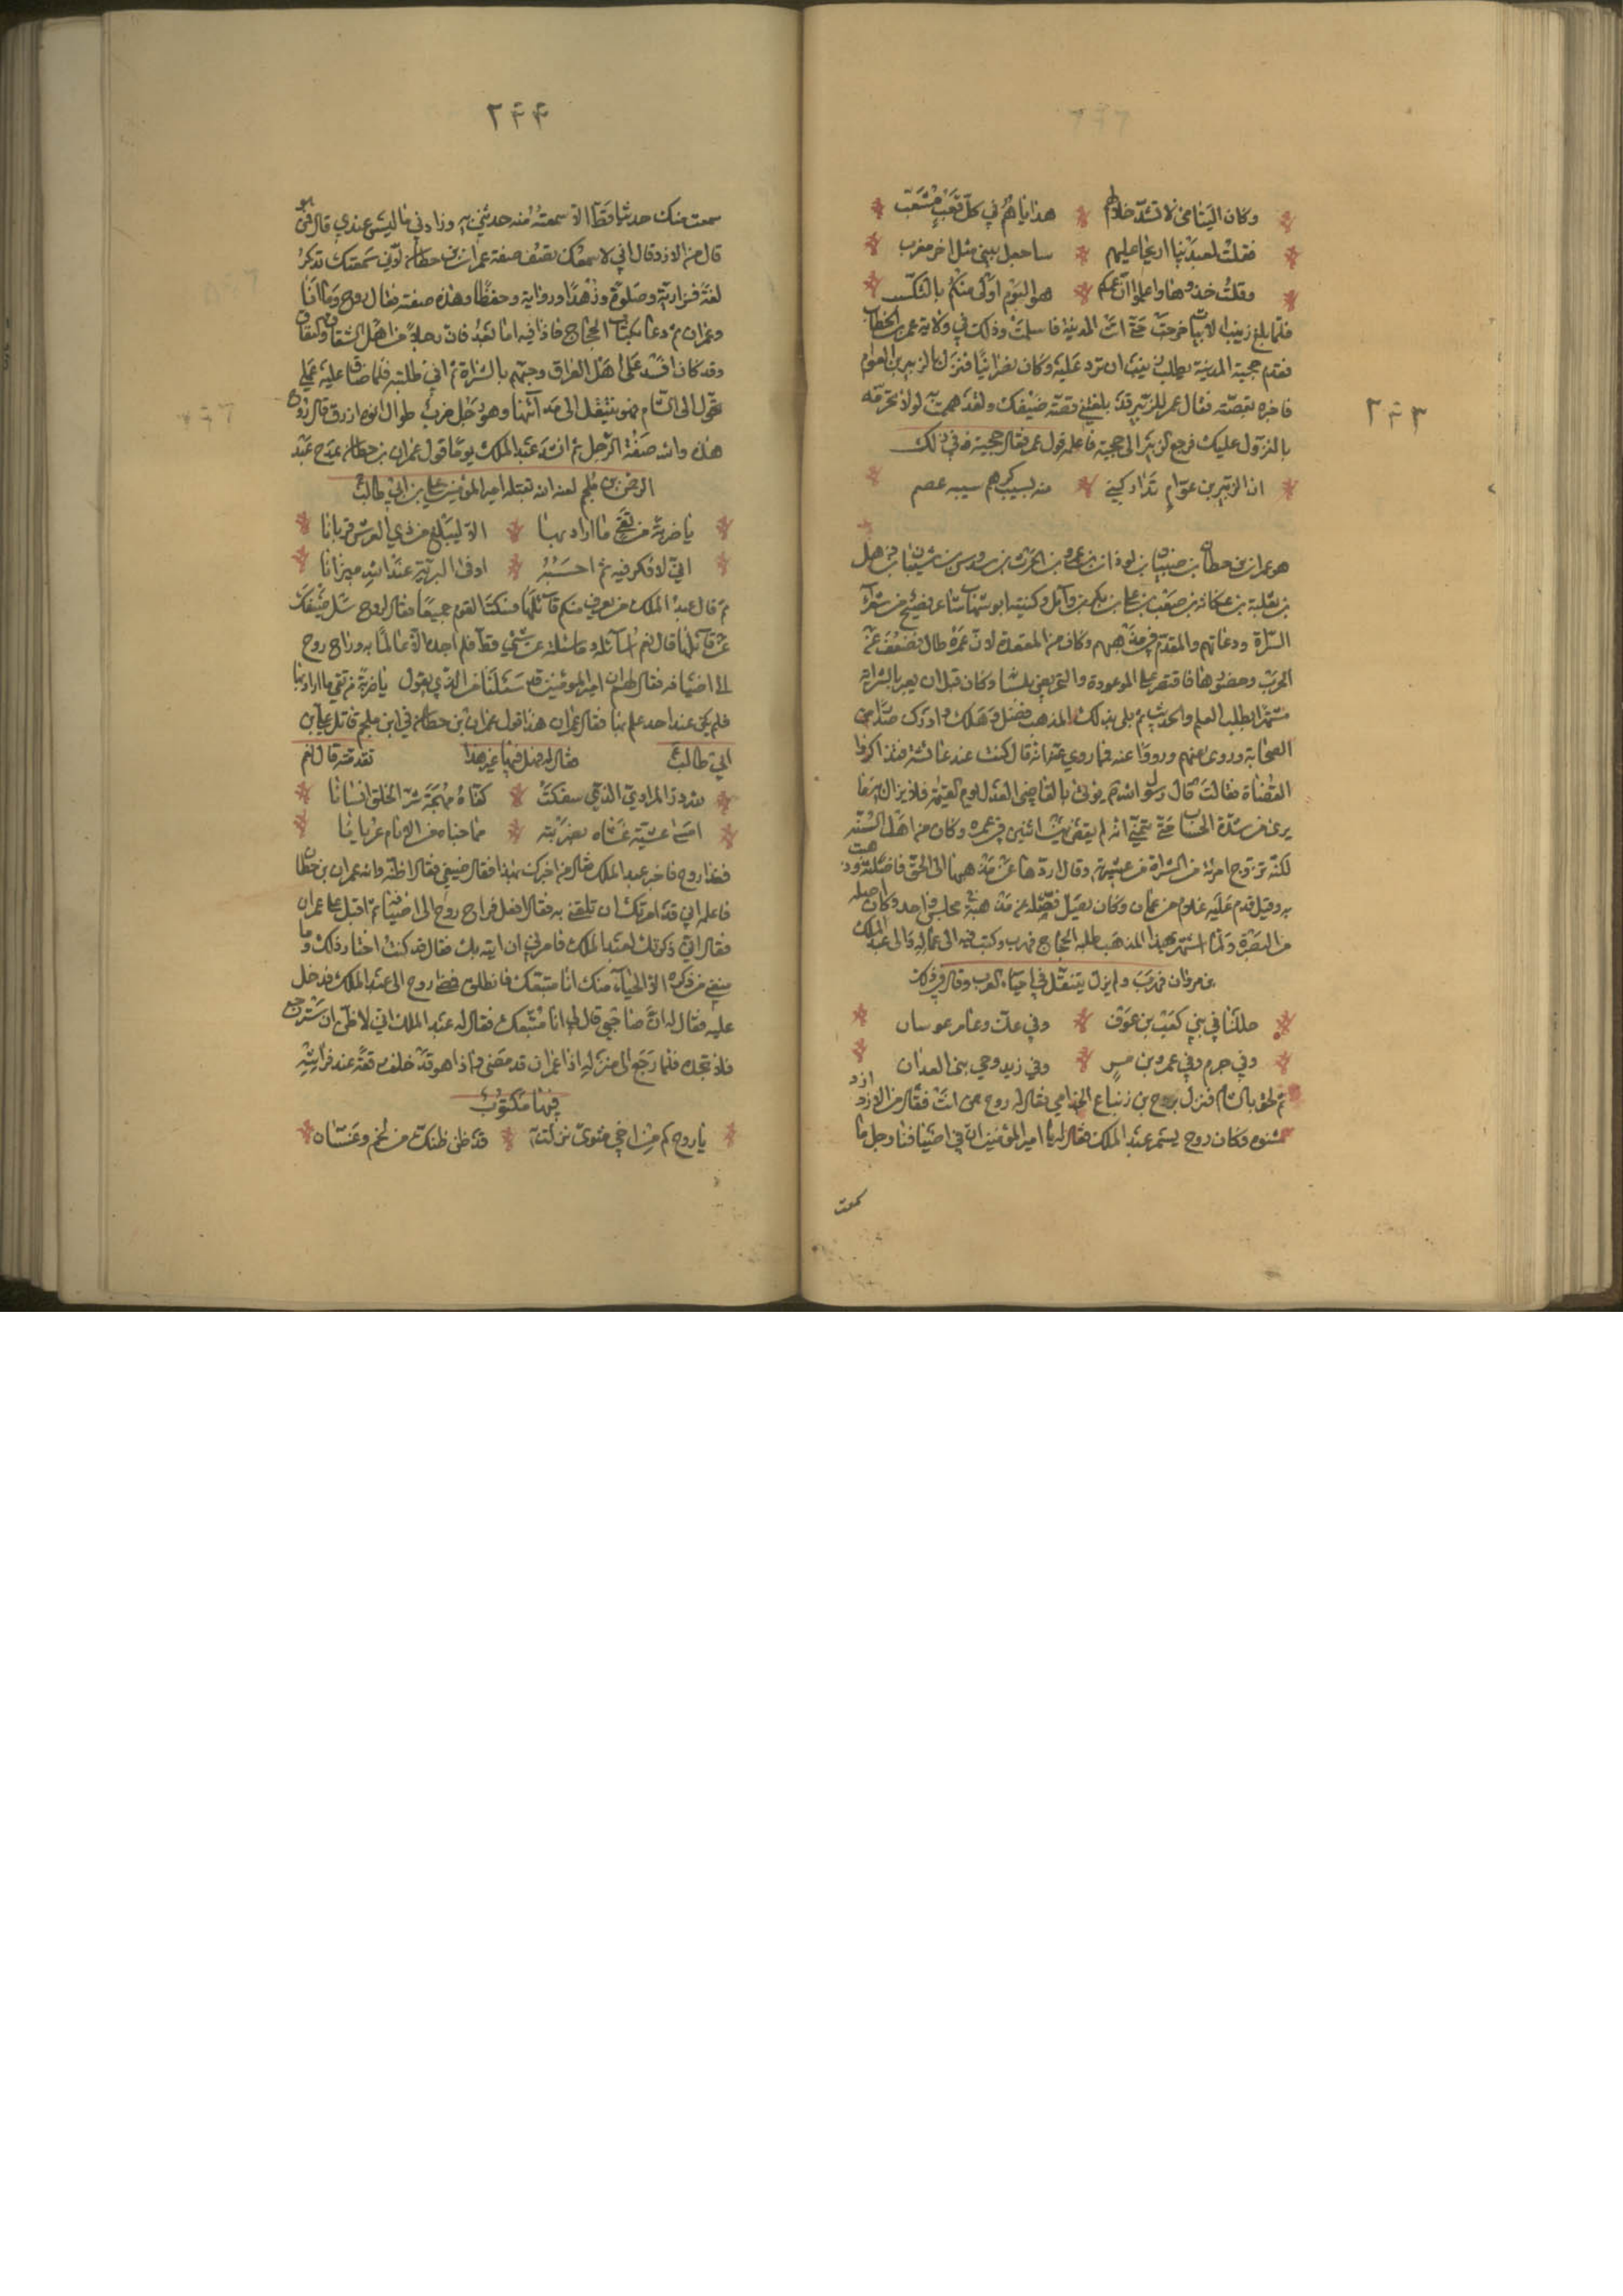 ٢٤٣
وكان اليتامى لا تشد خلالهم هدايا لهم في كل قعب مشعب
فقلت لعبدينا اريحا عليهم ساجعل بيتي مثل اخر مغرب
وقلت خذوها واعلموا ان عمكم هو اليوم اولى منكم بالتكسب
فلما بلغ زينب الابيات خرجت حتى اتت المدينة فاسلمت وذلك في ولاية عمر بن الخطاب
فقدم حجية المدينة يطلب زينب ان ترد عليه وكان نصرانيا فنزل بالزبير بن العوام
فاخبره بقصته فقال عمر للزبير قد بلغني قصة ضيفك ولقد هممت لولا تحرمه
بالنزول عليك فرجع الزبير الى حجية فاعلمه قول عمر فقال حجية في ذلك
ان الزبير بن عوام تداركني منه بسيب كريم سيبه عصم
هو عمران بن حطان بن ظبيان بن لوذان بن عمرو بن الحرث بن سدوس بن شيبان بن ذهل
بن ثعلبة بن عكابة بن صعب بن علي بن بكر بن وآيل وكنيته ابو شهاب شاعر فصيح من شعراء
الشراة ودعاتهم والمقدم في مذهبهم وكان من القعدة لان عمره طال فضعف عن
الحرب وحضورها فاقتصر على الدعوة والتحريض بلسانه وكان قبل ان يعير بالشراة
مشتهرا بطلب العلم والحديث ثم بلي بذلك المذهب فضل وهلك وادرك صدرا من
الصحابة وروى عنهم ورووا عنه فما روي عنه انه قال كنت عند عائشة فتذاكروا
القضاة فقالت قال رسول الله يؤتى بالقاضي العدل يوم القيمة فلا يزال به ما
يرى من شدة الحساب حتى يتمنى انه لم يقض بين اثنين في عمره وكان من اهل السنة
لكنه تزوج امرئة من الشراة من عشيرته وقال اردها عن مذهبها الى الحق فاضلته وذهبت
به وقيل قدم عليه غلام من عمان وكان فقلبه عن مذهبه في مجلس واحد وكان اصله
من البصرة ولما اشتهر بهذا المذهب طلبه الحجاج فهرب وكتب فيه الى عماله والى عبد الملك
بن مروان فهرب ولم يزل يتنقل في احياء العرب وقال في ذلك
حللنا في بني كعب بن عوف وفي عك وعامر عوسان
وفي جرم وفي عمرو بن مر وفي زيد وحي بني العدان
ثم لحق بالشام فنزل بروح بن زنباع الجذامي فقال له روح ممن انت فقال من الازد ازد
شنوة وكان روح يسمر عند عبد الملك فقال له يا امير المؤمنين ان في اضيافنا رجل ما
سمعت
٢٤٤
سمعت منك حديثا قط الا سمعته منه حدثني به وزادني ما ليس عندي قال ممن هو
قال من الازد وقال اني لاسمعك تصف صفة عمران بن حطان لاني سمعتك تذكر
لغة نزارية وصلوة وزهدا ورواية وحفظا وهذه صفته فقال روح وما انا
وعمران ثم دعا بكتاب الحجاج فاذا فيه اما بعد فان رجلا من اهل الشقاق والنفاق
وقد كان افسد على اهل العراق وحببهم بالشراة ثم اني طلبته فلما ضاق عليه عملي
تحول الى الشام فهو يتنقل الى مدائنها وهو رجل ضرب طوال افوه ازرق قال روح
هذه والله صفة الرجل ثم انشد عبد الملك يوما قول عمران بن حطان يمدح عبد
الرحمن بن ملجم لعنه الله بقتله امير المؤمنين علي بن ابي طالب
يا ضربة من تقي ما اراد بها الا ليبلغ من ذي العرش قربانا
اني لافكر فيه ثم احسبه اوفى البرية عند الله ميزانا
ثم قال عبد الملك من يعرف منكم قائلها فسكت القوم جميعا فقال لروح سل ضيفك
عن قائلها قال نعم انا سائله وما سئلته عن شيء قط فلم اجده الا عالما به وراح روح
الى اضيافه فقال لهم ان امير المؤمنين قد سئلنا من الذي يقول يا ضربة من تقي ما اراد بها
فلم يكن عند احد علم بها فقال عمران هذا قول عمران بن حطان في ابن ملجم قاتل علي بن
ابي طالب فقال له فهل فيها غير هذا تفدنيه قال نعم
لله در المرادي الذي سفكت كفاه مهجة شر الخلق انسانا
امسى عشية غشاه بضربته مما جناه من الاثام عريانا
فغدا روح فاخبر عبد الملك فقال من اخبرك بهذا فقال ضيفي فقال اظنه والله عمران بن حطان
فاعلمه اني قد امرتك ان تلقني به فقال افعل فراح روح الى اضيافه ثم اقبل على عمران
فقال اني ذكرتك لعبد الملك فامرني ان اتيه بك فقال قد كنت اختار ذلك وما
منعني من ذكره الا الحياء منك انا متبعك فانطلق فمضى روح الى عبد الملك فدخل
عليه فقال له اين صاحبي قال لي انا متبعك فقال له عبد الملك اني لاظن ان سترجع
فلا تجده فلما رجع الى منزله اذا عمران قد مضى واذا هو قد خلف رقعة عند فراشه
فيها مكتوب
يا روح كم من اخي مثوى نزلت به قد ظن ظنك من لخم وغسان